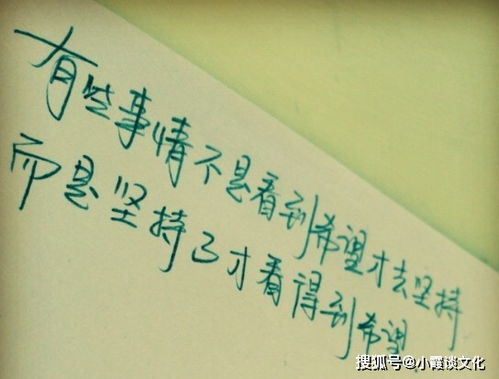 有些事情不是看到希望才去坚持
而是坚持了才看得到希望
搜狐号@小霞谈文化